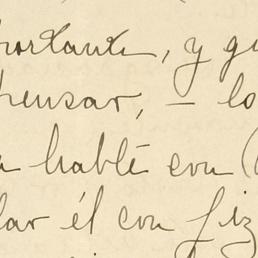 portante, y qu
pensar, – lo
a hablé con (
lar él con fiz